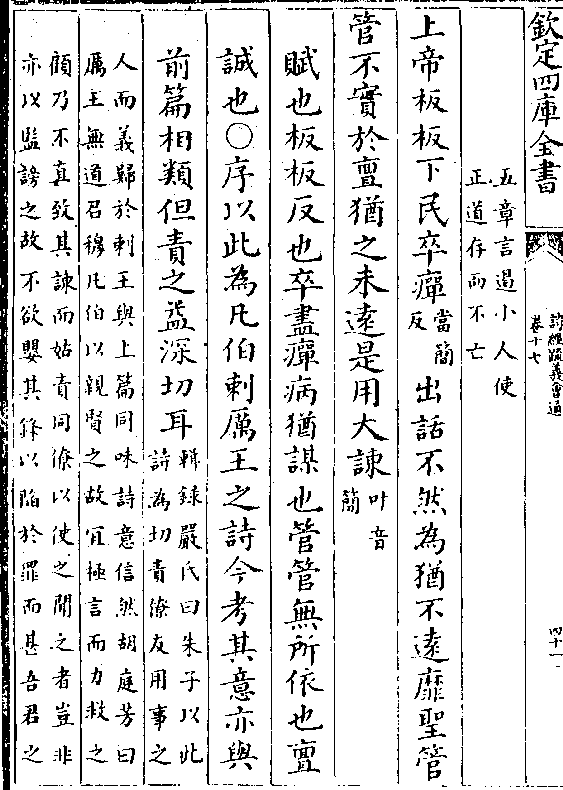 欽定四庫全書
詩經疏義會通
卷十七
四十一
五章言遏小人使
正道存而不亡
上帝板板下民卒癉當簡反出話不然為猶不遠靡聖管
管不實於亶猶之未遠是用大諫叶音簡
賦也板板反也卒盡癉病猶謀也管管無所依也亶
誠也○序以此為凡伯刺厲王之詩今考其意亦與
前篇相類但責之益深切耳輯錄嚴氏曰朱子以此
詩為切責僚友用事之
人而義歸於刺王與上篇同味詩意信然胡庭芳曰
厲王無道召穆凡伯以親賢之故宜極言而力救之
顧乃不直致其諫而姑責同僚以使之聞之者豈非
亦以監謗之故不欲嬰其鋒以陷於罪而甚吾君之